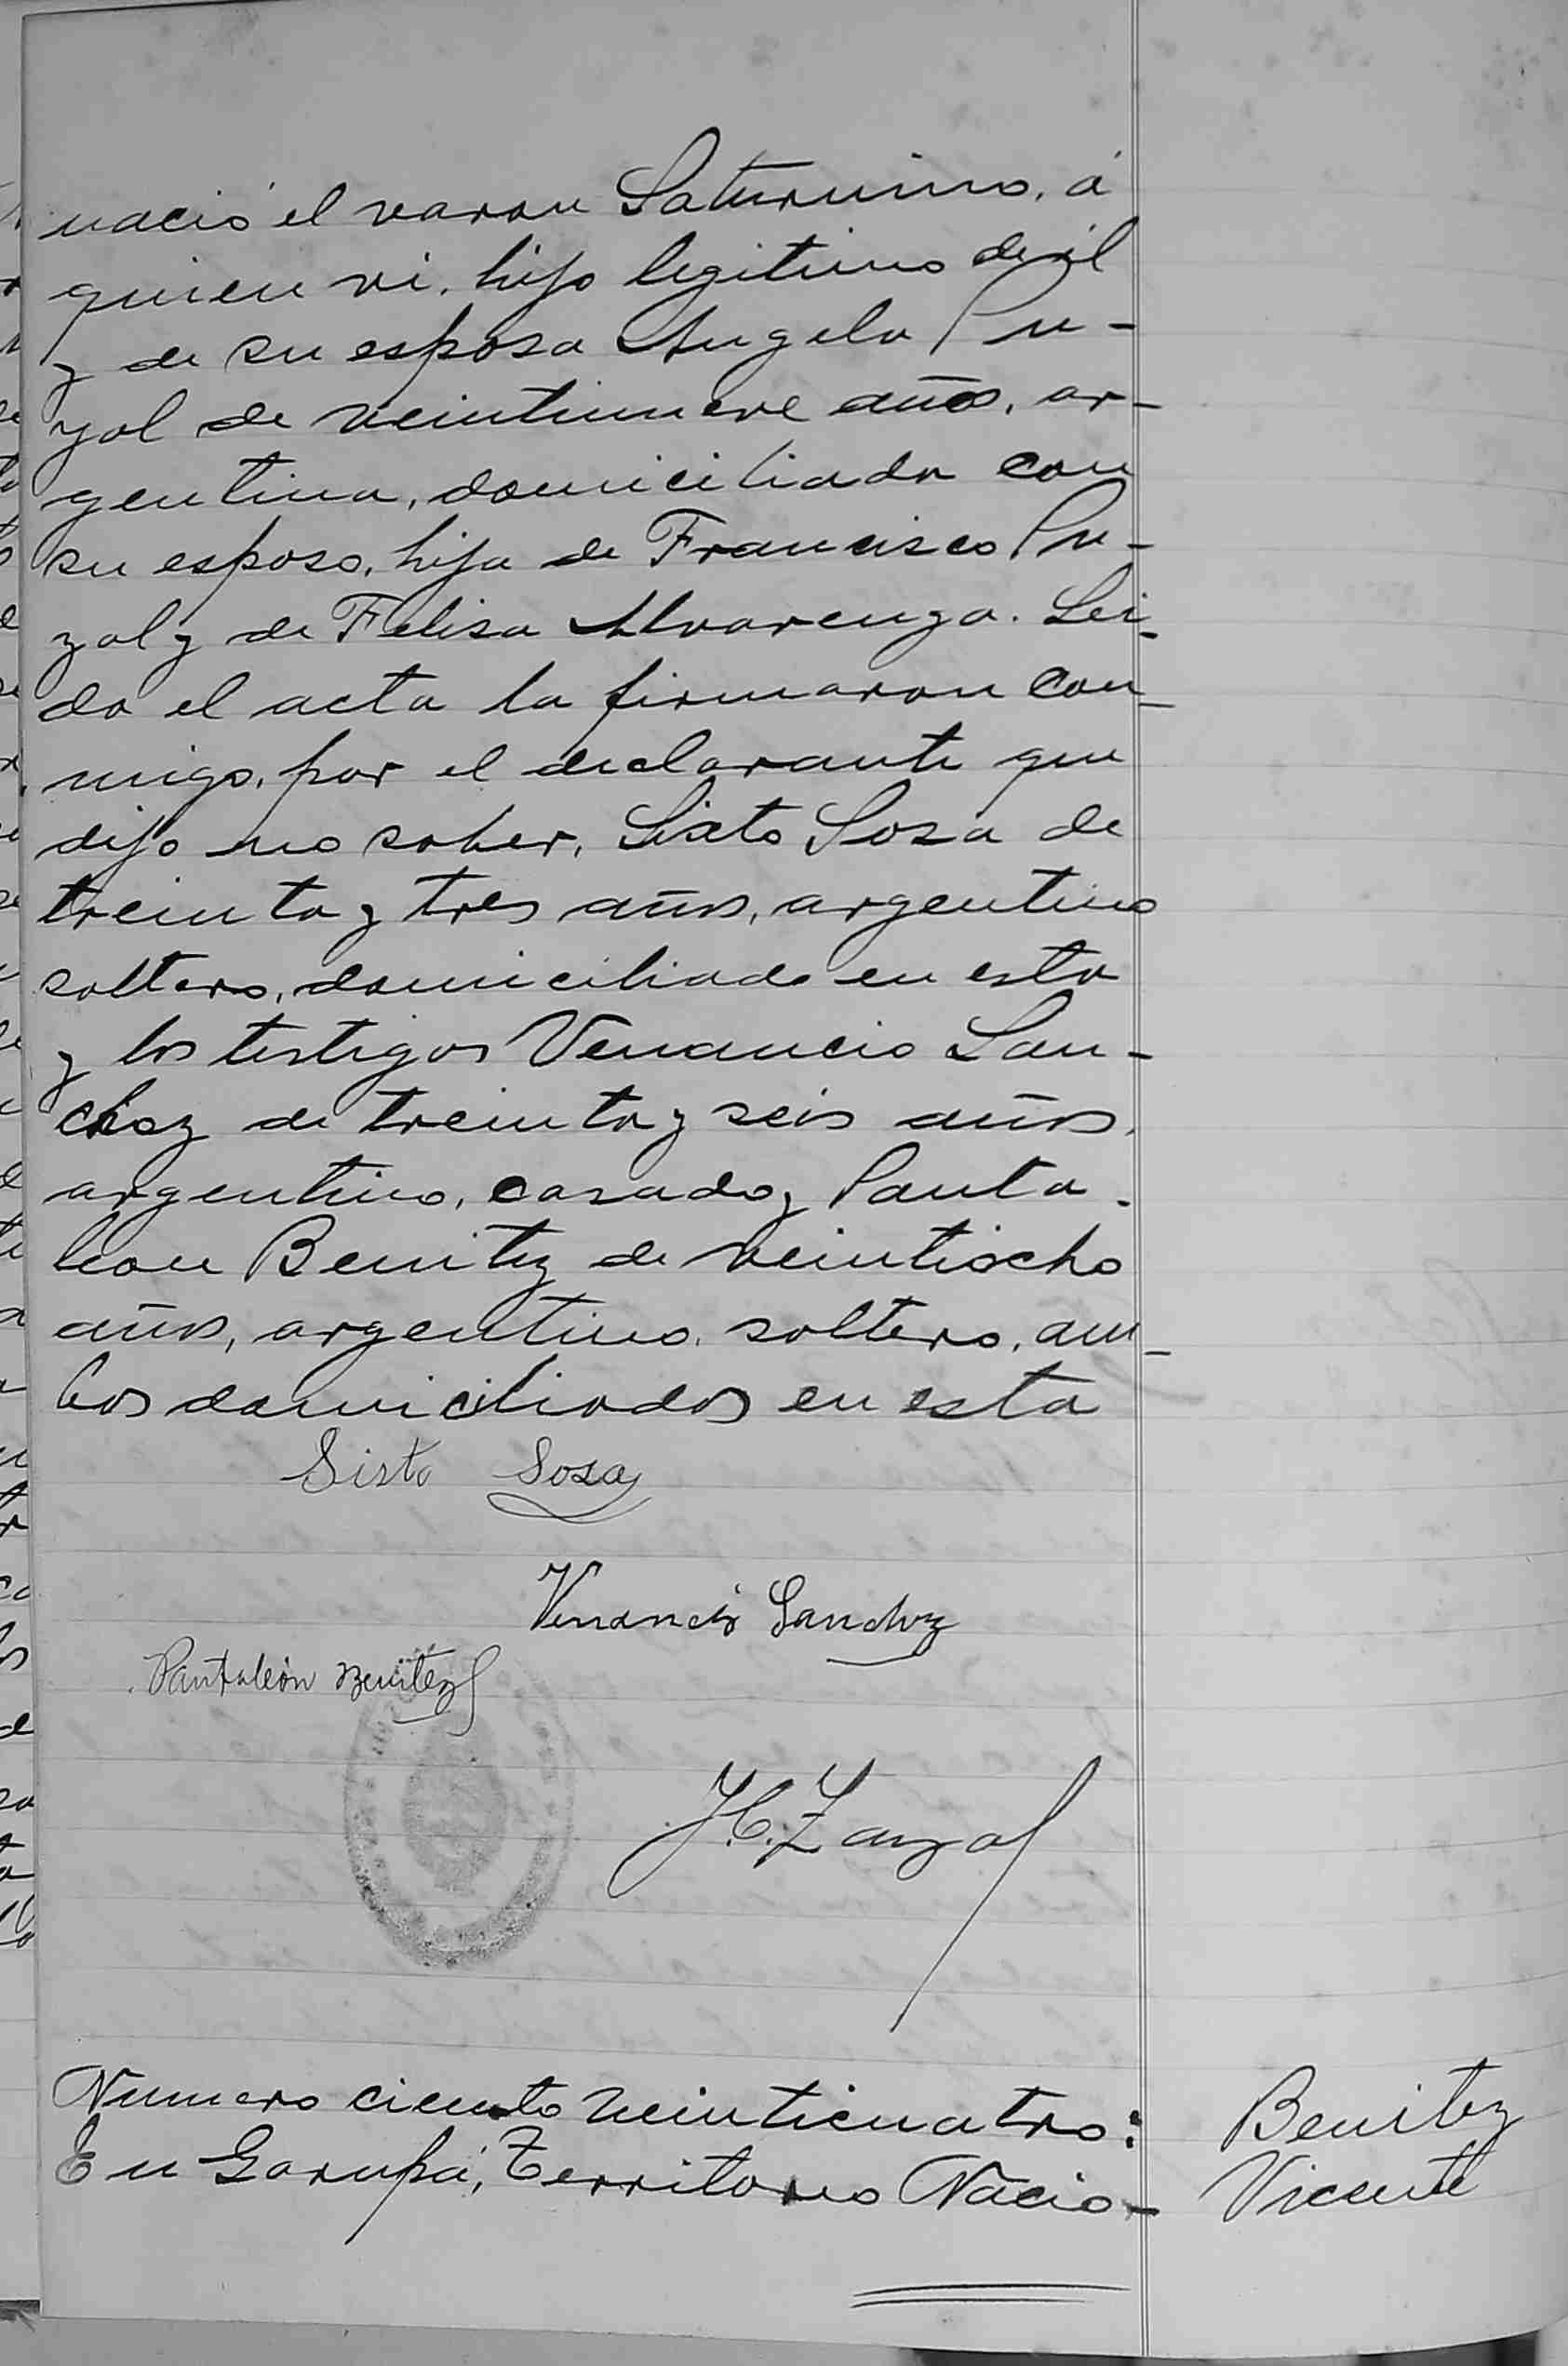 nació el varon Saturnino, á
quien vi, hijo legitimo de él
y de su esposa Angela Pu-
yol de veintinueve años, ar-
gentina, domiciliada con
su esposo, hija de Francisco Pu-
yol y de Felisa Alvarenga. Lei-
da el acta la firmaron con-
migo, por el declarante que
dijo no saber, Sixto Sosa de
treinta y tres años, argentino
soltero, domiciliado en esta
y los testigos Venancio San-
chez de treinta y seis años,
argentino, casado y Panta-
leon Benitez de veintiocho
años, argentino, soltero, am-
bos domiciliados en esta
Sisto Sosa
Venancio Sanchez
Pantaleón Benitez
J.C.
Numero ciento veinticuatro:
En Garupá, Territorio Nacio-
Benitez
Vicente